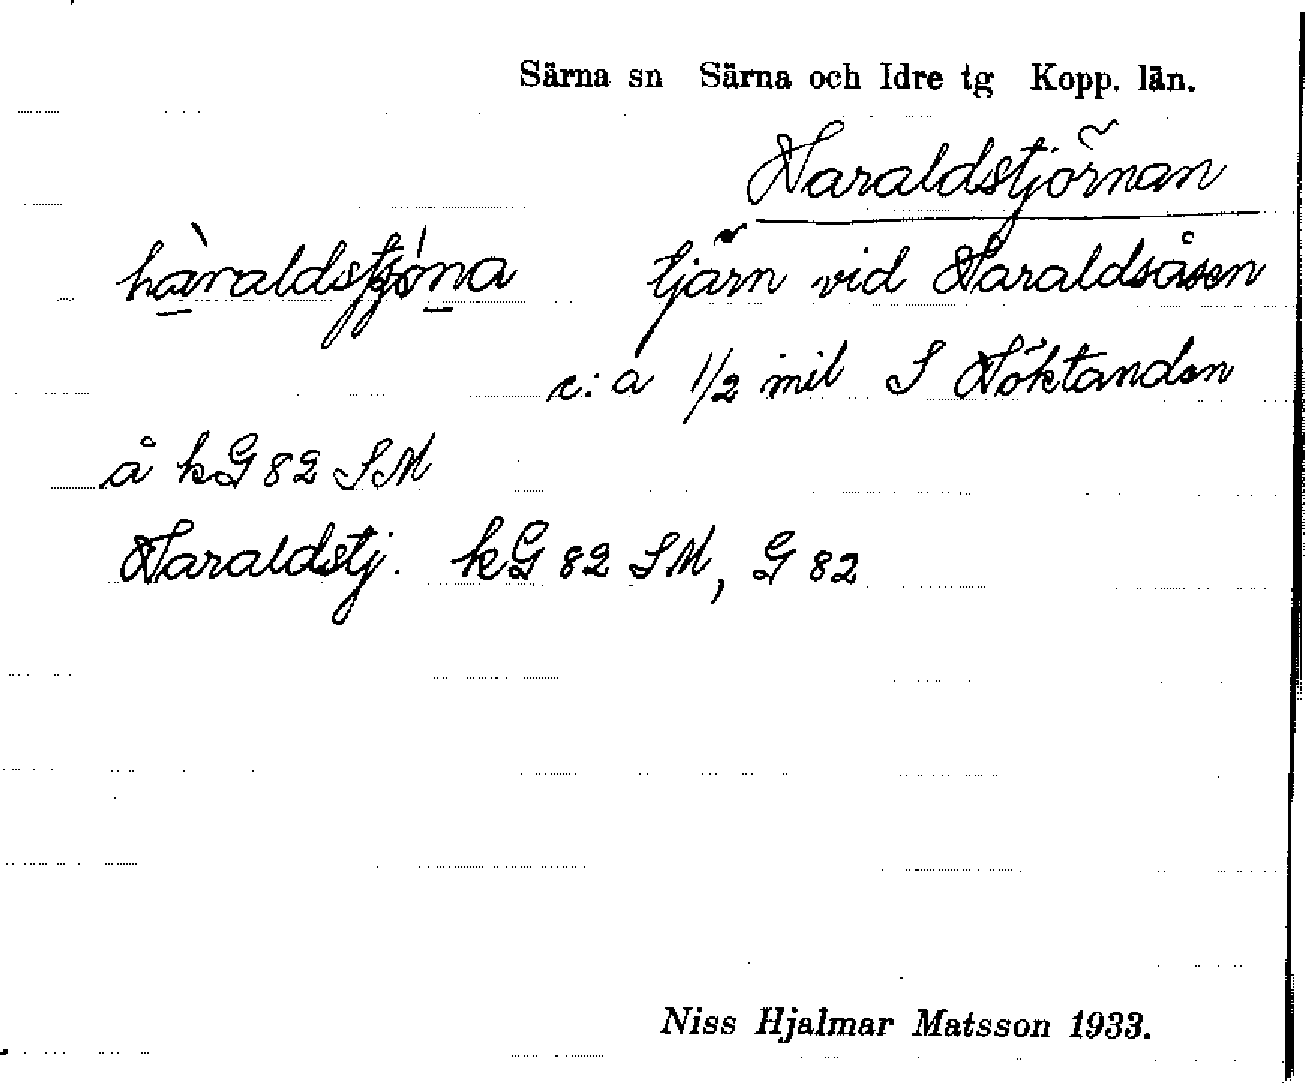 Särna sn Särna och Idre tg Kopp. län.
Haraldstjörnan
hàraldstjóna tjärn vid Haraldsåsen
c:a 1/2 mil S Höktanden
å kG 82 SM
Haraldstj. kG 82 SM, G 82
Niss Hjalmar Matsson 1933.